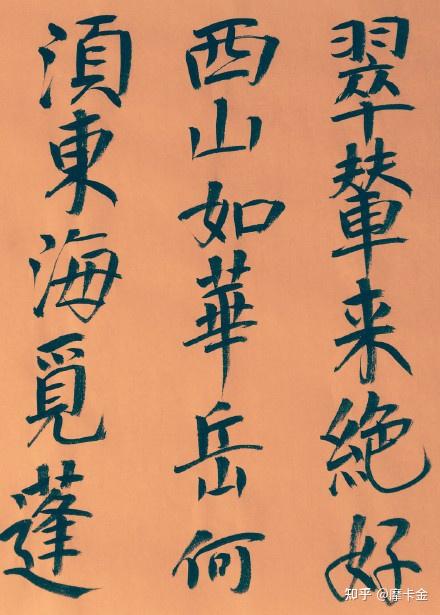 翠輦来絶好
西山如華岳何
湏東海覓蓬
知乎 @摩卡金